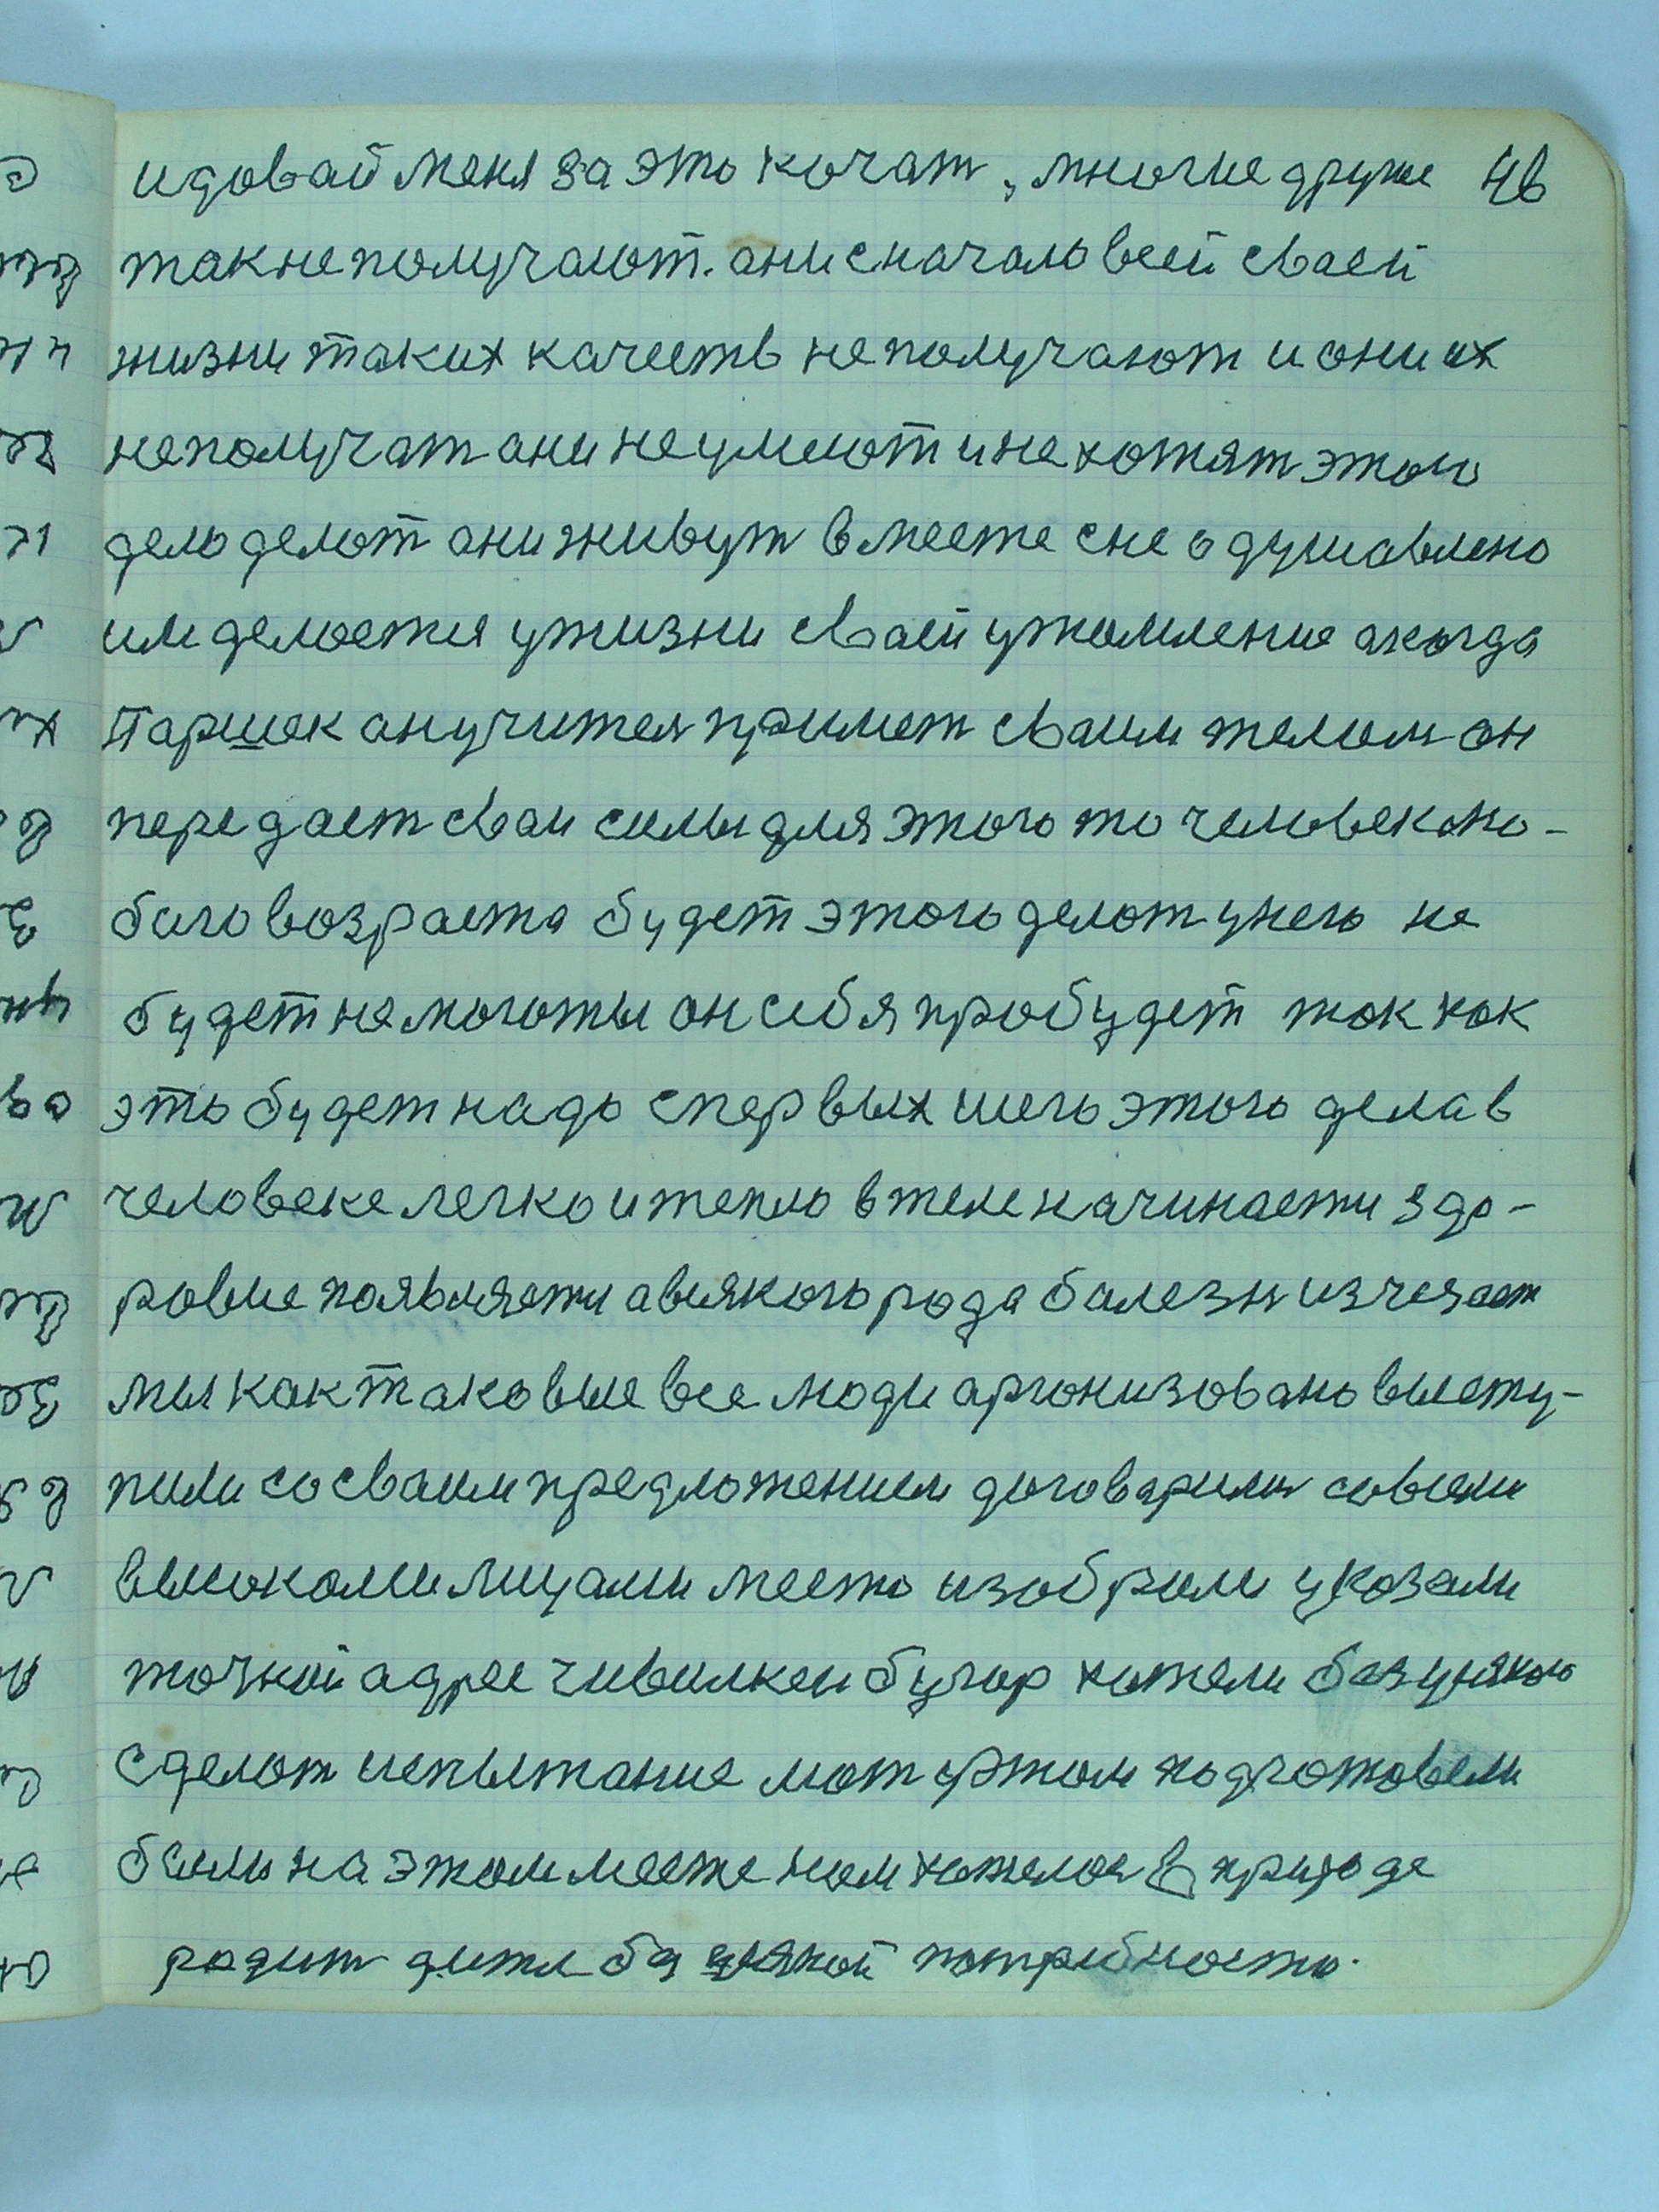 идовай меня за это кочат, многие друие 46
так не получают. ани с начало всей сваей
жизни таких качеств не получают и они их
не получат ани не умеют и не хотят этого
дело делот ани живут в месте с не одушавлено
им делоется у жизни сваей утомление а когда
Паршек анучителя примет сваим телом он
передает сваи силы для этого то человек лю-
бого возраста будет этого делот у него не
будет не моготы он себя пробудет ток как
эть будет надо с первых шего этого дела в
человеке легко и тепло в теле начинаети здо-
ровие появляети а всякого рода балезн изчезает
мы как таковые все люди арганизовано высту-
пили со сваим предложением договарилис совсеми
высокоми лицами место изобрали указали
точной адрес чивилкен бугор хотели без усякого
сделот испытание мот этом подготовели
были на этом месте нам хотелоя в природе
родит дитя без усякой потребность.